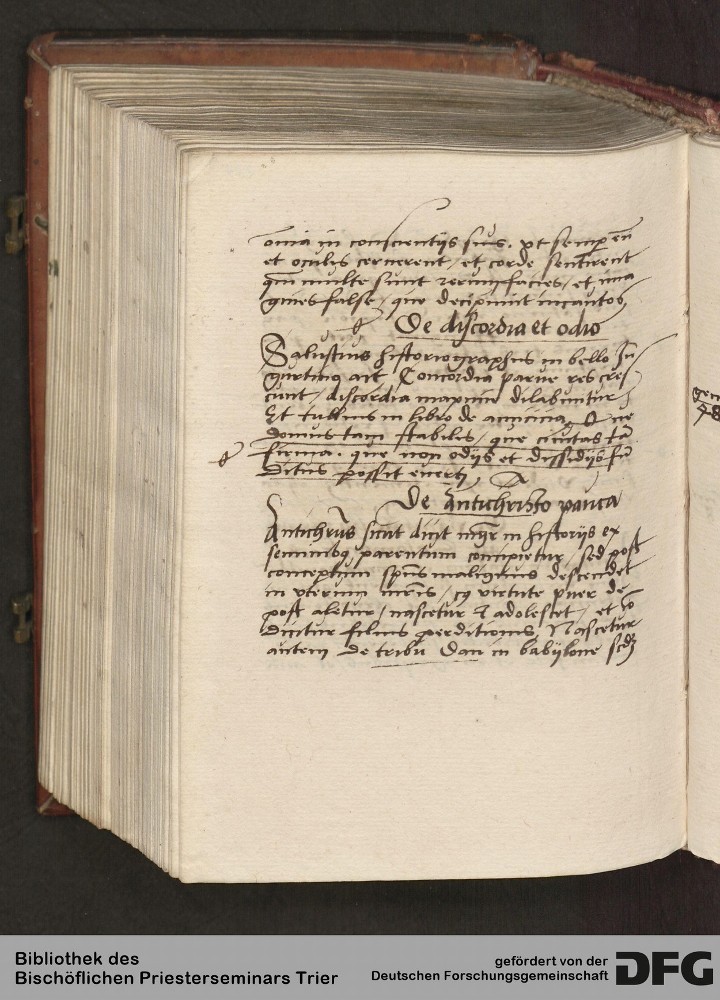 omnia in conscientijs suis. vt semper eñ
et oculis cernerent / et corde sentirent
qm̃ multe sunt rerum facies / et ima
gines false / que decipiunt incautos
De discordia et odio
Salustius historiographus in bello Iu
gurtino ait Concordia parue res cres
cunt / discordia maxime dilabuntur
Et tullius in libro de amicicia Que
domus tam stabilis / que ciuitas tã
firma. que non odijs et dissidijs fũ
ditus possit euerti
De Antichristo pauca
Antichrũs sicut dicit mgr̃ in historijs ex
seminibꝫ parentum concipietur / sed post
conceptum spũs malignus descendet
in vterum mr̃is / cuius virtute puer de
post aletur / nascetur & adolescet / et iõ
dicitur filius perditionis Nascetur
autem de tribu Dan in babilone scdꝫ
gen
48
Bibliothek des
Bischöflichen Priesterseminars Trier
gefördert von der
Deutschen Forschungsgemeinschaft
DFG